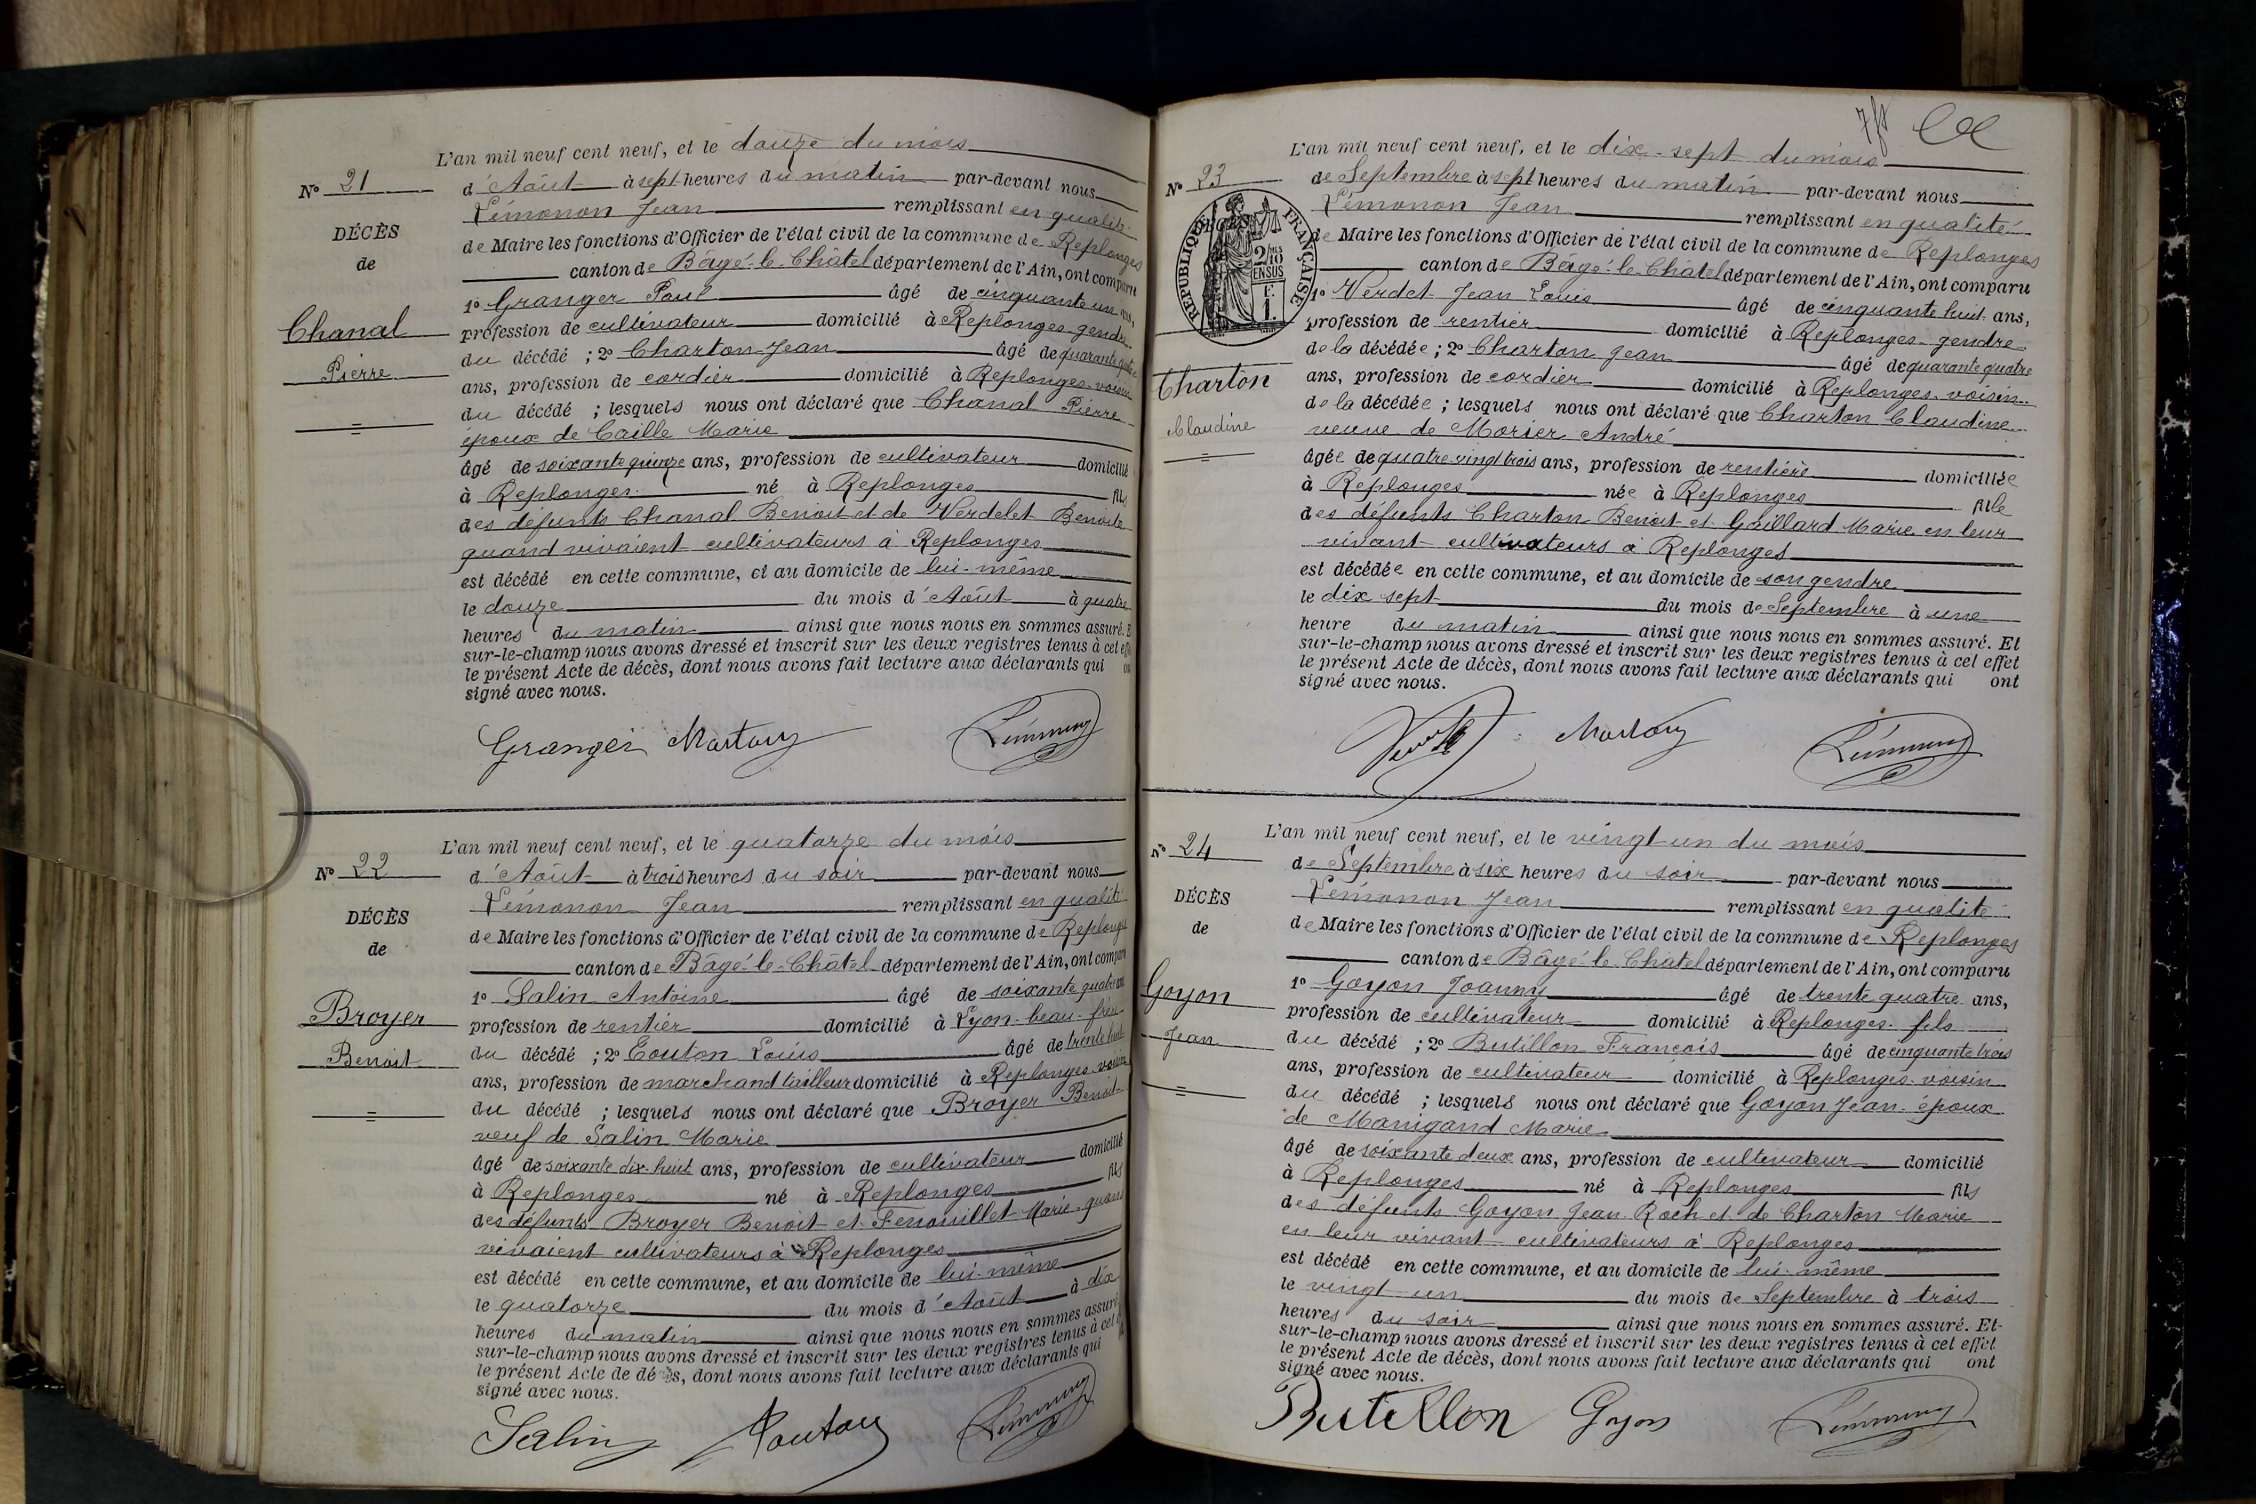 L'an mil neuf cent neuf, et le douze du mois
N° 21
d'Août à sept heures du matin par-devant nous
Lémonon Jean remplissant en qualité
DÉCÈS
de Maire les fonctions d'Officier de l'état civil de la commune de Replonges
de
canton de Bâgé-le-Châtel département de l'Ain, ont comparu
1° Granger Paul âgé de cinquante un ans,
Chanal
profession de cultivateur domicilié à Replonges gendre
du décédé ; 2° Charton Jean âgé de quarante quatre
Pierre
ans, profession de cordier domicilié à Replonges voisin
du décédé ; lesquels nous ont déclaré que Chanal Pierre
époux de Caille Marie
âgé de soixante quinze ans, profession de cultivateur domicilié
à Replonges né à Replonges fils
des défunts Chanal Benoit et de Verdelet Benoite
quand vivaient cultivateurs à Replonges
est décédé en cette commune, et au domicile de lui-même
le douze du mois d'Août à quatre
heures du matin ainsi que nous nous en sommes assuré. E
sur-le-champ nous avons dressé et inscrit sur les deux registres tenus à cet effe
le présent Acte de décès, dont nous avons fait lecture aux déclarants qui on
signé avec nous.
Granger
L'an mil neuf cent neuf, et le quatorze du mois
N° 22
d'Août à trois heures du soir par-devant nous
Lémonon Jean remplissant en qualité
DÉCÈS
de Maire les fonctions d'Officier de l'état civil de la commune de Replonges
de
canton de Bâgé-le-Châtel département de l'Ain, ont comparu
1° Salin Antoine âgé de soixante quatre ans
Broyer
profession de rentier domicilié à Lyon beau-frère
du décédé ; 2° Louton Louis âgé de trente huit
Benoit
ans, profession de marchand tailleur domicilié à Replonges voisin
du décédé ; lesquels nous ont déclaré que Broyer Benoit
veuf de Salin Marie
âgé de soixante dix-huit ans, profession de cultivateur domicilié
à Replonges né à Replonges fils
des défunts Broyer Benoit et Fenouillet Marie quand
vivaient cultivateurs à Replonges
est décédé en cette commune, et au domicile de lui-même
le quatorze du mois d'Août à dix
heures du matin ainsi que nous nous en sommes assuré
sur-le-champ nous avons dressé et inscrit sur les deux registres tenus à cet e
le présent Acte de décès, dont nous avons fait lecture aux déclarants qui
signé avec nous.
Salin
L'an mil neuf cent neuf, et le dix-sept du mois
N° 23
de Septembre à sept heures du matin par-devant nous
Lémonon Jean remplissant en qualité
RÉPUBLIQUE FRANÇAISE
2/10 EN SUS
de Maire les fonctions d'Officier de l'état civil de la commune de Replonges
canton de Bâgé-le-Châtel département de l'Ain, ont comparu
1° Verdet Jean Louis âgé de cinquante huit ans,
profession de rentier domicilié à Replonges gendre
de la décédée ; 2° Charton Jean âgé de quarante quatre
Charton
ans, profession de cordier domicilié à Replonges voisin
de la décédée ; lesquels nous ont déclaré que Charton Claudine
Claudine
veuve de Morier André
âgée de quatre vingt trois ans, profession de rentière domiciliée
à Replonges née à Replonges fille
des défunts Charton Benoit et Gaillard Marie en leur
vivant cultivateurs à Replonges
est décédée en cette commune, et au domicile de son gendre
le dix sept du mois de Septembre à une
heure du matin ainsi que nous nous en sommes assuré. Et
sur-le-champ nous avons dressé et inscrit sur les deux registres tenus à cet effet
le présent Acte de décès, dont nous avons fait lecture aux déclarants qui ont
signé avec nous.
L'an mil neuf cent neuf, et le vingt un du mois
N° 24
de Septembre à six heures du soir par-devant nous
Lémonon Jean remplissant en qualité
DÉCÈS
de Maire les fonctions d'Officier de l'état civil de la commune de Replonges
de
canton de Bâgé-le-Châtel département de l'Ain, ont comparu
1° Goyon Joanny âgé de trente quatre ans,
Goyon
profession de cultivateur domicilié à Replonges fils
du décédé ; 2° Butillon François âgé de cinquante trois
Jean
ans, profession de cultivateur domicilié à Replonges voisin
du décédé ; lesquels nous ont déclaré que Goyon Jean époux
de Manigand Marie
âgé de soixante deux ans, profession de cultivateur domicilié
à Replonges né à Replonges fils
des défunts Goyon Jean Roch et de Charton Marie
en leur vivant cultivateurs à Replonges
est décédé en cette commune, et au domicile de lui-même
le vingt un du mois de Septembre à trois
heures du soir ainsi que nous nous en sommes assuré. Et
sur-le-champ nous avons dressé et inscrit sur les deux registres tenus à cet effet
le présent Acte de décès, dont nous avons fait lecture aux déclarants qui ont
signé avec nous.
Butillon Goyon